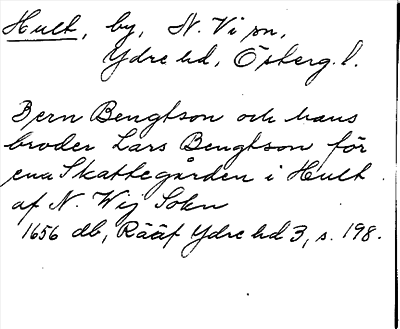 Hult, by, N. Vi sn,
Ydre hd, Österg. l.
Bern Bengtson och hans
broder Lars Bengtson för
ena Skattegården i Hult
af N. Wij Sokn
1656 db, Rääf Ydre hd 3, s. 198.